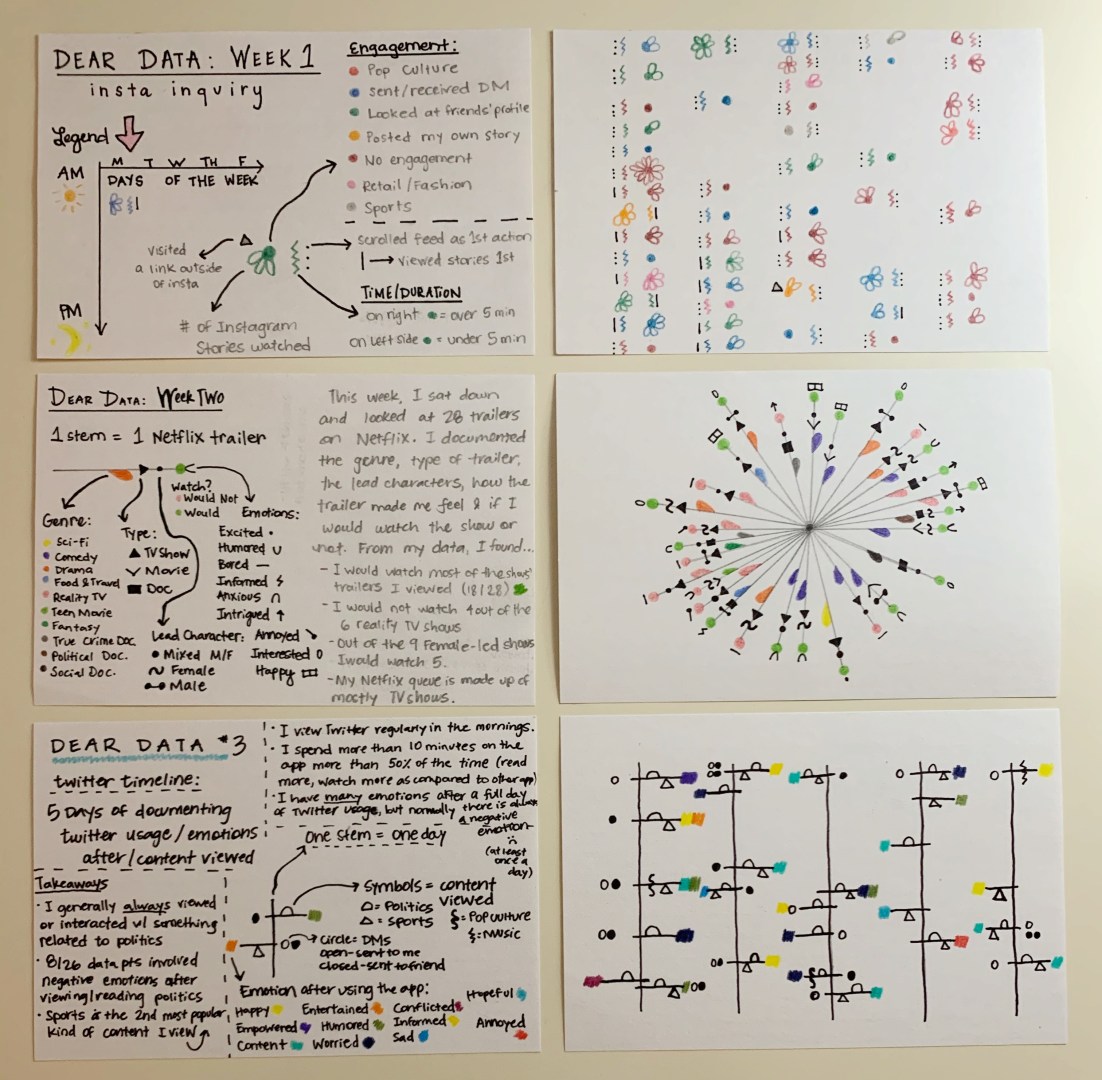 DEAR DATA: WEEK 1
insta inquiry
Legend
AM
M T W TH F
DAYS OF THE WEEK
PM
visited
a link outside
of insta
# of Instagram
Stories watched
Engagement:
Pop Culture
Sent/received DM
Looked at friends' profile
Posted my own story
No engagement
Retail/Fashion
Sports
scrolled feed as 1st action
viewed stories 1st
TIME/DURATION
on right = over 5 min
on left side = under 5 min
DEAR DATA: WEEK TWO
1 stem = 1 Netflix trailer
Genre:
Sci-Fi
Comedy
Drama
Food & Travel
Reality TV
Teen Movie
Fantasy
True Crime Doc.
Political Doc.
Social Doc.
Type:
TV Show
Movie
Doc
Watch?
Would Not
Would
Emotions:
Excited
Humored
Bored
Informed
Anxious
Intrigued
Annoyed
Interested
Happy
Lead Character:
Mixed M/F
Female
Male
This week, I sat down
and looked at 28 trailers
on Netflix. I documented
the genre, type of trailer,
the lead characters, how the
trailer made me feel & if I
would watch the show or
not. From my data, I found...
- I would watch most of the shows'
trailers I viewed (18/28)
- I would not watch 4 out of the
6 reality TV shows
- Out of the 9 Female-led shows
I would watch 5.
- My Netflix queue is made up of
mostly TV shows.
DEAR DATA #3
twitter timeline:
5 Days of documenting
twitter usage/emotions
after/content viewed
· I view Twitter regularly in the mornings.
· I spend more than 10 minutes on the
app more than 50% of the time (read
more, watch more as compared to other app)
· I have many emotions after a full day
of Twitter usage, but normally there is always
a negative
emotion
(at least
once a
day)
Takeaways
· I generally always viewed
or interacted w/ something
related to politics
· 8/26 data pts involved
negative emotions after
viewing/reading politics
· Sports is the 2nd most popular
kind of content I view
one stem = one day
Symbols = content
viewed
= Politics
= Sports
= Pop Culture
= Music
Circle = DMs
open-sent to me
closed-sent to friend
Emotion after using the app:
Happy
Entertained
Conflicted
Hopeful
Empowered
Humored
Informed
Annoyed
Content
Worried
Sad